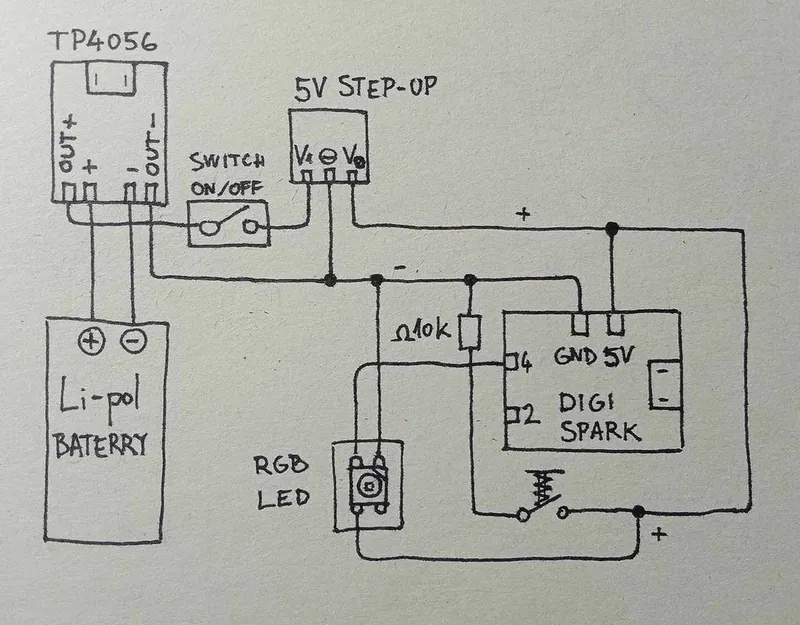 TP4056
OUT+
+
-
OUT-
SWITCH
ON/OFF
5V STEP-UP
V⊖V
+
-
Ω10k
GND 5V
4
2
DIGI
SPARK
+ -
Li-pol
BATERRY
RGB
LED
+